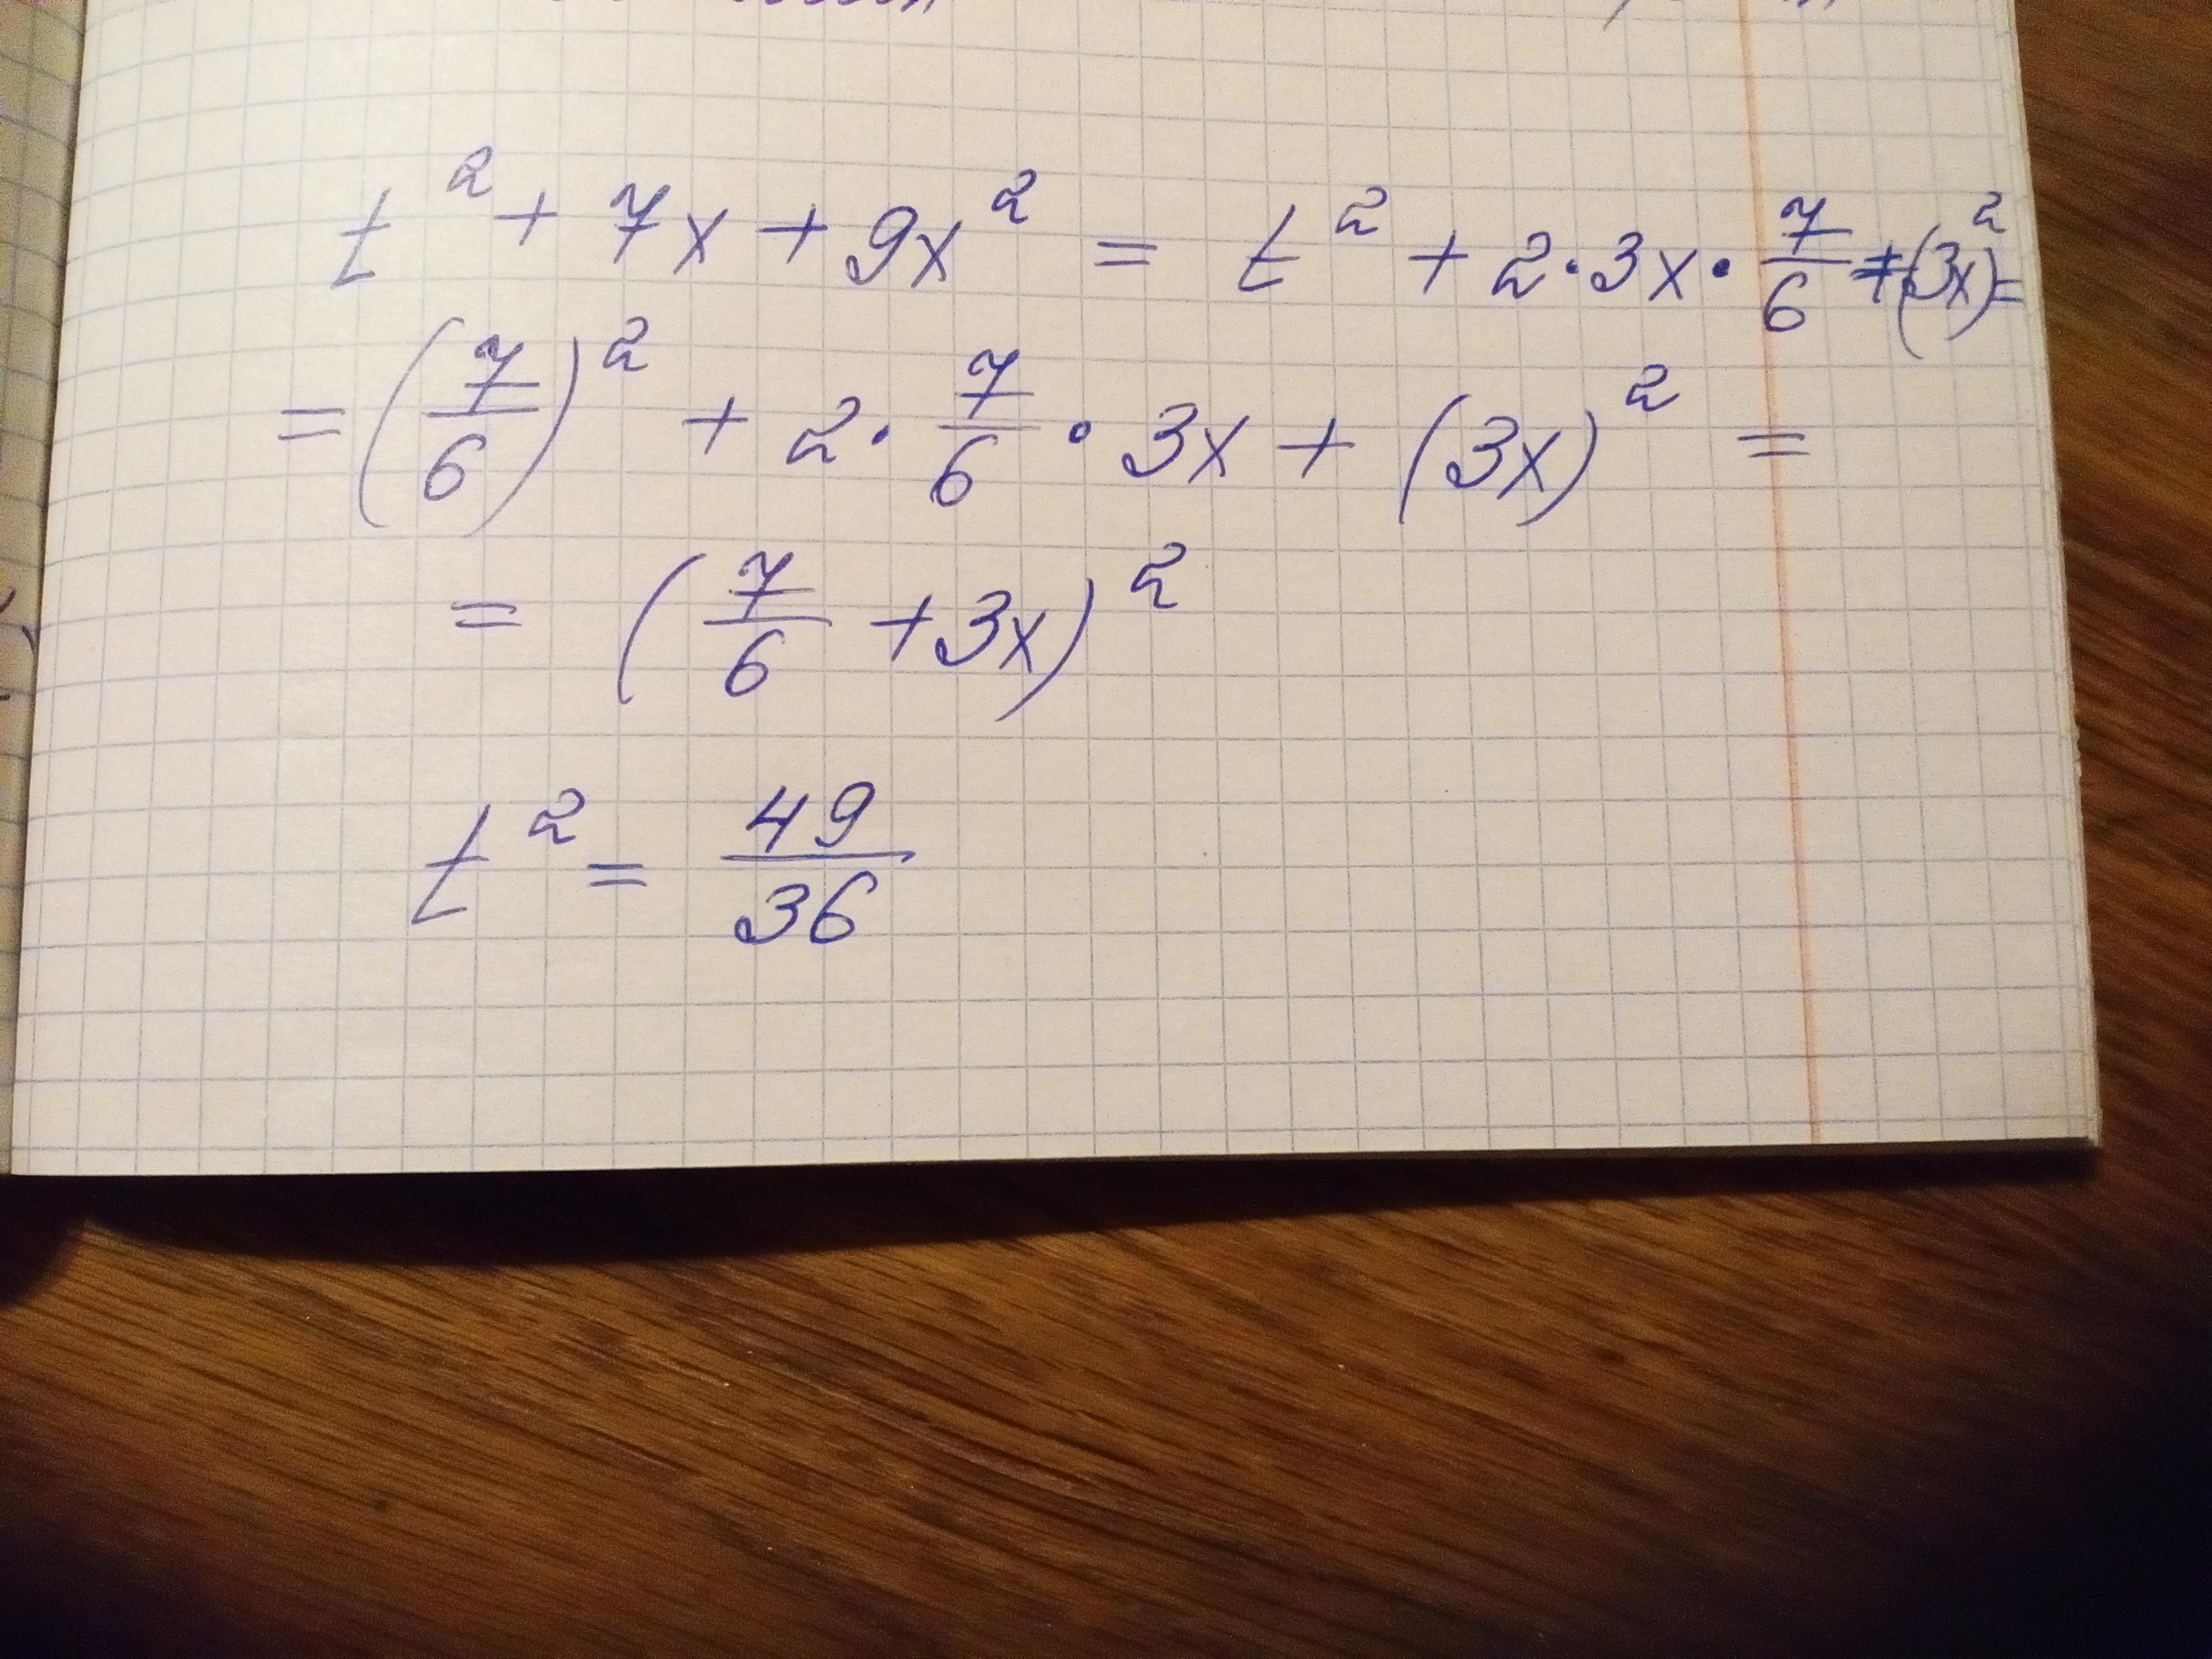 t² + 7x + 9x² = t² + 2·3x·7/6 + (3x)² =
= (7/6)² + 2·7/6·3x + (3x)² =
= (7/6 + 3x)²
t² = 49/36